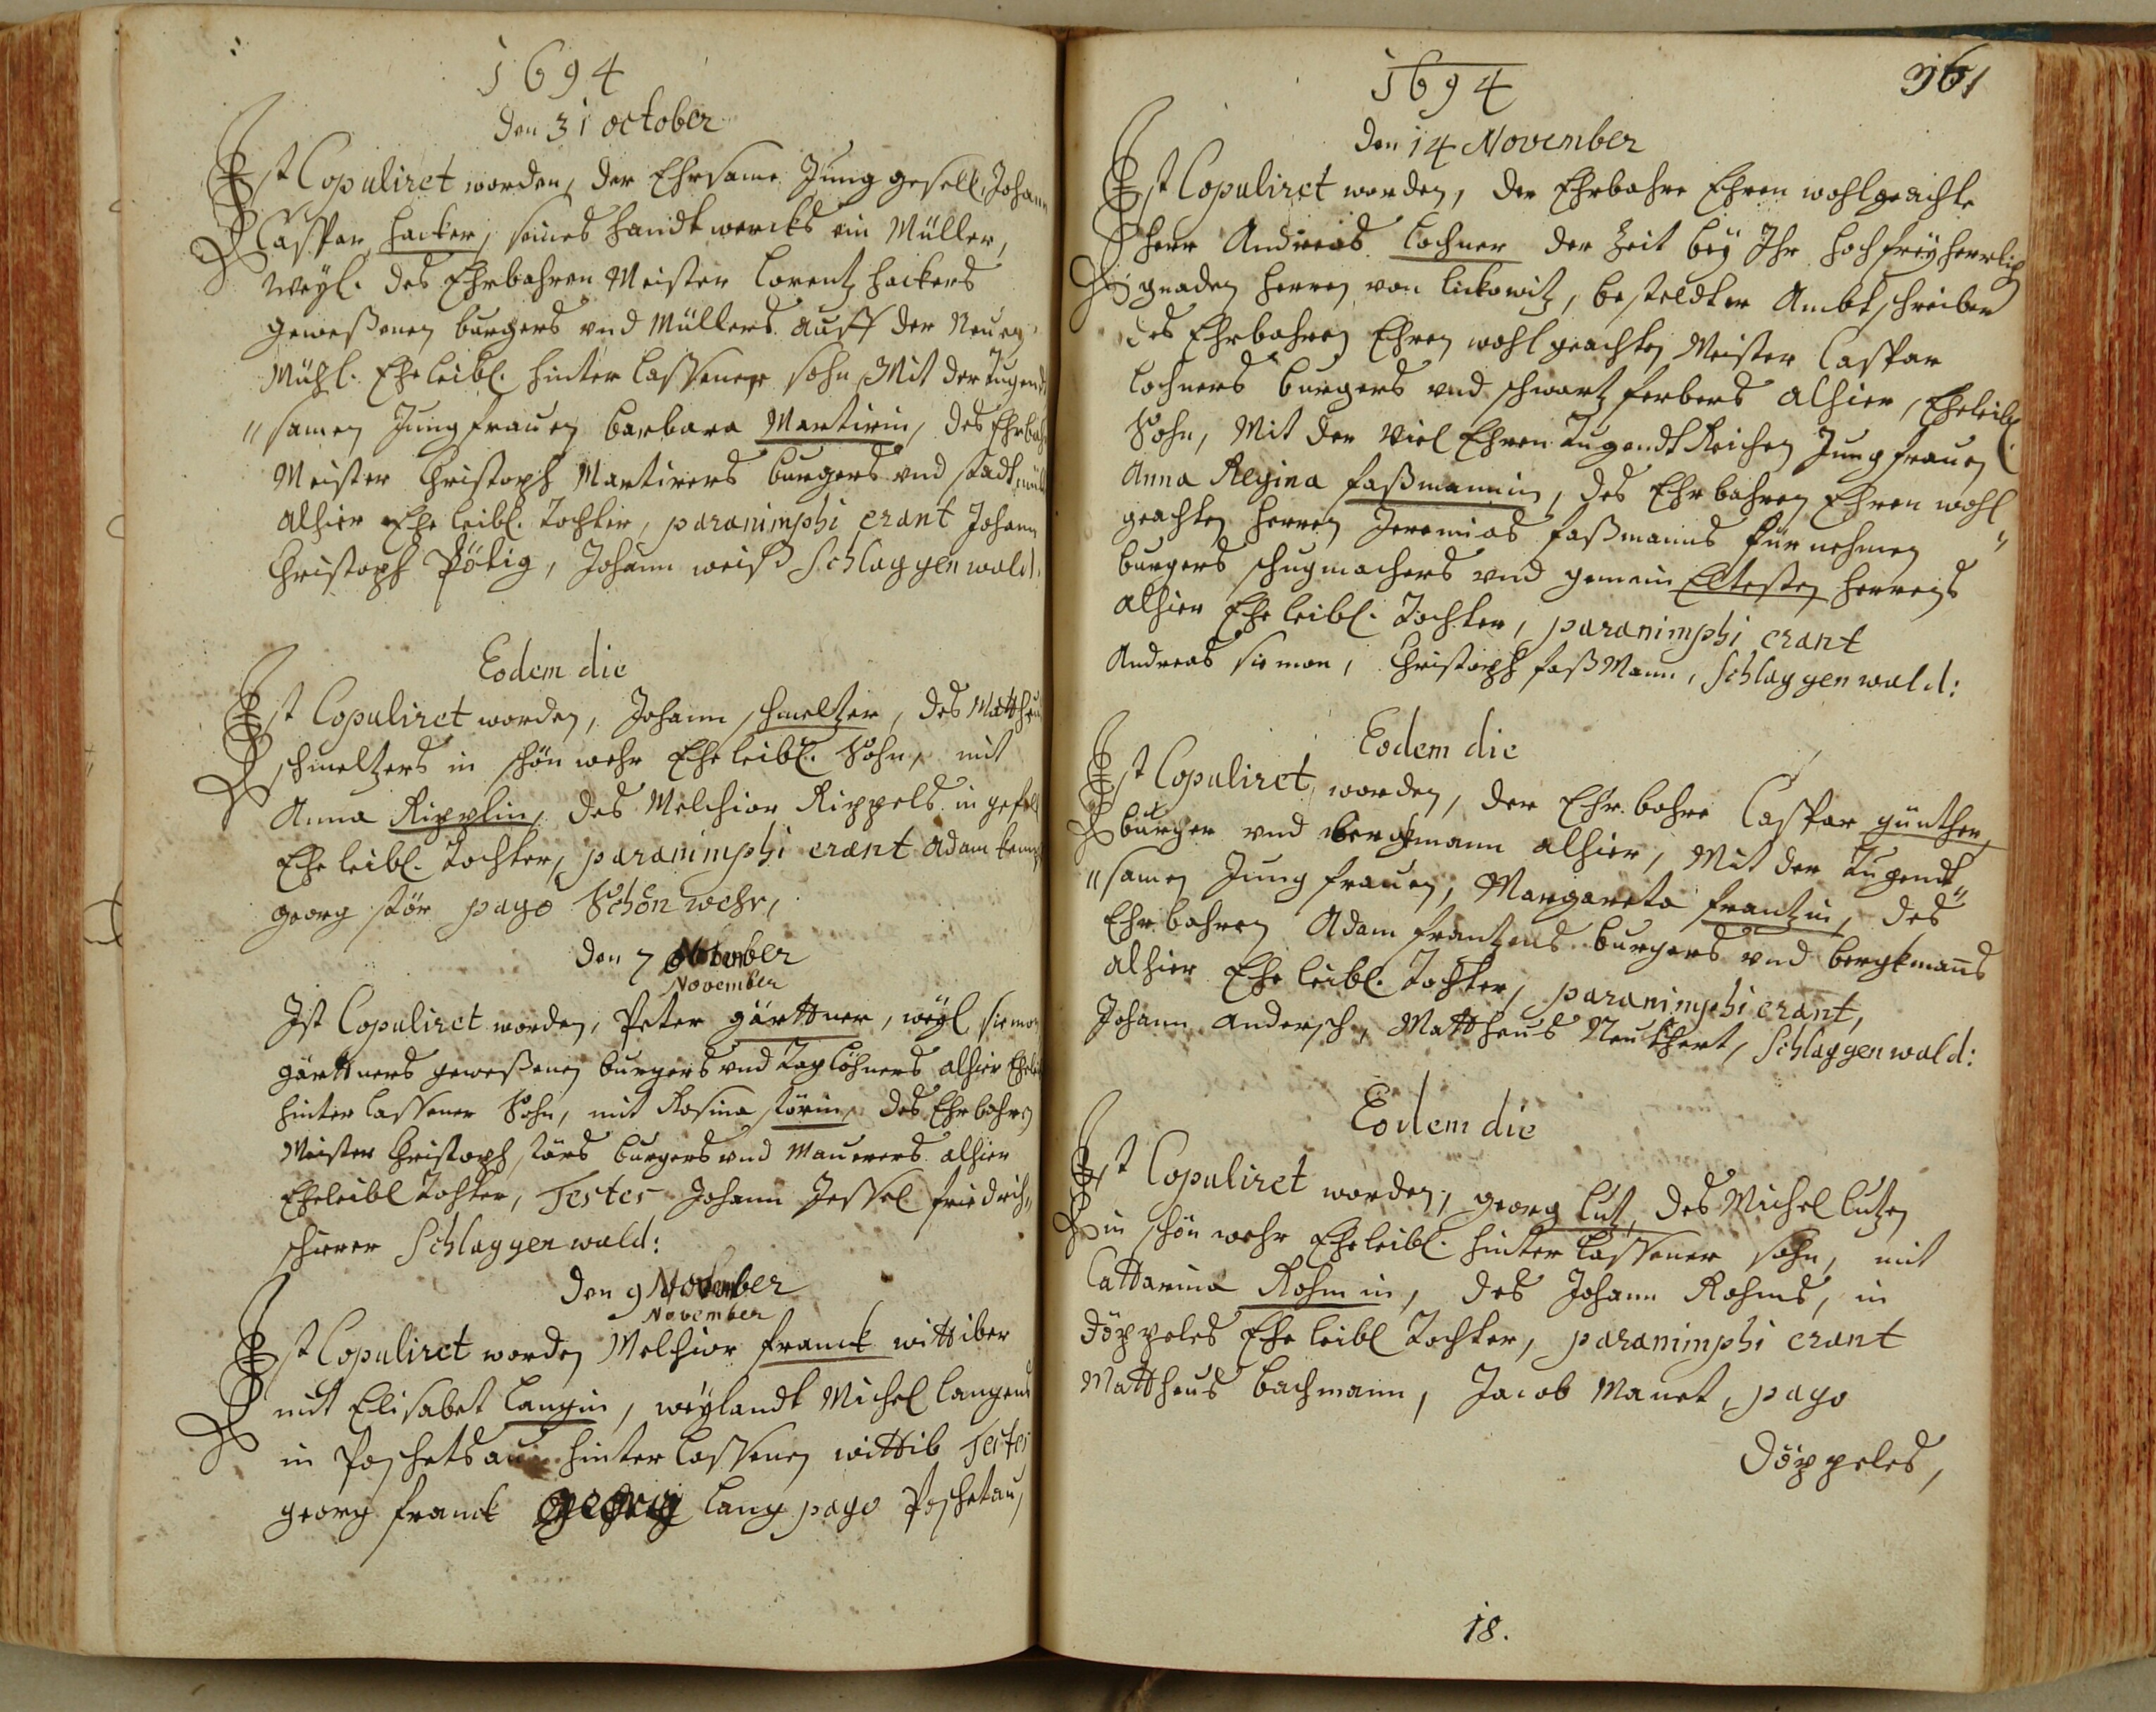 1694
den 31 october
Ist Copuliret worden, der Ehrsame Jung gesell, Johann
Caspar hacker, seines handtwercks ein Müller,
weyl. des Ehrbahren Meister Lorentz hackers
geweßenen burgers vnd Müllers auff der Neuen
Mühl. Eheleibl. hinter lassener sohn, Mit der tugendt
"samen Jungfrauen barbara Martirin, des Ehrbah
Meister Christoph Martirers burgers vnd stadtmül
alhier Ehe leibl. Tochter, paranimphi erant Johann
Christoph Pötig, Johann weiß Schlaggenwald.
Eodem die
Ist Copuliret worden, Johann schmeltzer, des Mattheus
schmeltzers in schön wehr Ehe leibl. Sohn, mit
Anna Ripplin, des Melchior Rippels in gefell
Ehe leibl. Tochter, paranimphi erant Adam
georg stör pago Schönwehr,
den 7 November
November
Ist Copuliret worden, Peter gärttner, weyl. siemon
gärttners geweßenen burgers vnd Taglöhners alhier Eheleib
hinter lassener Sohn, mit Rosina störin, des Ehrbahren
Meister Christoph störs burgers vnd Maurers alhier
Eheleibl Tochter, Testes Johann Jessel friedrich
schirer Schlaggenwald:
den 9 November
November
Ist Copuliret worden Melchior franck wittiber
mit Elisabet Langin, weylandt Michel langens
in Poschetsau hinter lassenen wittib Testes
georg franck georg lang pago Poschetau,
1694
361
den 14 November
Ist Copuliret worden, der Ehrbahre Ehren wohlgeachte
herr Andreas Lochner der Zeit bey Ihr hochfreyherrlich
gnaden herren von lickowitz, besteldter Ambtschreiber
des Ehrbahren Ehren wohl geachten Meister Caspar
Lochners burgers vnd schwartz ferbers alhier, Eheleibl.
Sohn, Mit der viel Ehren Tugendt Reichen Jungfrauen
Anna Regina faßmannin, des Ehrbahren Ehren wohl
geachten herren Jeremias faßmanns fürnehmen "
burgers schugmachers vnd gemein Eltesten herrens
alhier Ehe leibl. Tochter, paranimphi erant
Andreas siemon, Christoph faßMann, Schlaggenwald:
Eodem die
Ist Copuliret worden, der Ehrbahre Caspar günther,
burger vnd bergkmann alhier, Mit der Tugendt"
"samen Jungfrauen, Margareta frantzin, des
Ehrbahren Adam frantzens burgers vnd bergkmans
alhier Ehe leibl. Tochter, paranimphi erant,
Johann Andersch, Mattheus Neukhert, Schlaggenwald:
Eodem die
Ist Copuliret worden, georg Lutz, des Michel lutzen
in schön wehr Eheleibl. hinter lassener sohn, mit
Cattarina Rohmin, des Johann Rohms, in
Döppeles Ehe leibl Tochter, paranimphi erant
Mattheus bachmann, Jacob Manet, pago
Döppeles,
18.